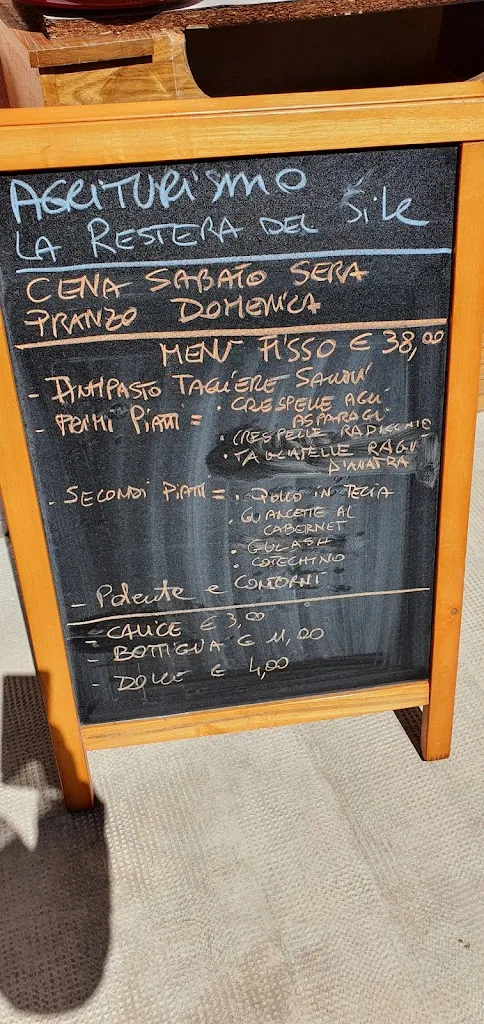 AGRITURISMO
LA RESTERA DEL Sile
CENA SABATO SERA
PRANZO DOMENICA
MENU' FISSO € 38,00
- ANTIPASTO TAGLIERE SALUMI
- PRIMI PIATTI = • CRESPELLE AGLI
ASPARAGI
• CRESPELLE RADICCHIO
• TAGLIATELLE RAGU'
D'ANATRA
- SECONDI PIATTI = • POLLO IN TECIA
• GUANCETTE AL
CABERNET
• GULASH
• COTECHINO
- Polenta e CONTORNI
- CALICE € 3,00
- BOTTIGLIA € 11,00
- DOLCE € 4,00